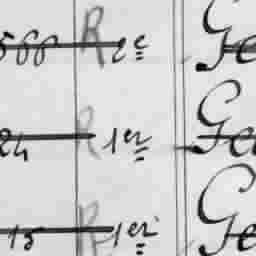 566 R 2e Ge
24 R 1er Ge
15 R 1er Ge